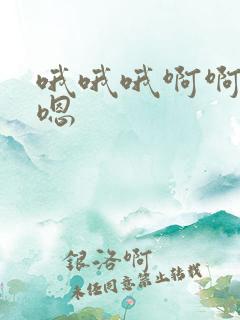 哦哦哦啊啊
嗯
银洛啊
未经同意禁止转载